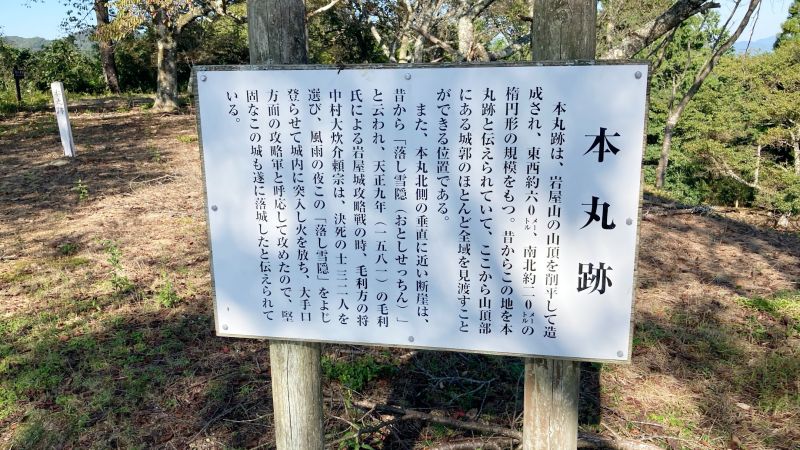 本丸跡
本丸跡は、岩屋山の山頂を削平して造
成され、東西約六〇メートル、南北約二〇メートルの
楕円形の規模をもつ。昔からこの地を本
丸跡と伝えられていて、ここから山頂部
にある城郭のほとんど全域を見渡すこと
ができる位置である。
また、本丸北側の垂直に近い断崖は、
昔から「落し雪隠（おとしせっちん）」
と云われ、天正九年（一五八一）の毛利
氏による岩屋城攻略戦の時、毛利方の将
中村大炊介頼宗は、決死の士三二人を
選び、風雨の夜この「落し雪隠」をよじ
登らせて城内に突入し火を放ち、大手口
方面の攻略軍と呼応して攻めたので、堅
固なこの城も遂に落城したと伝えられて
いる。